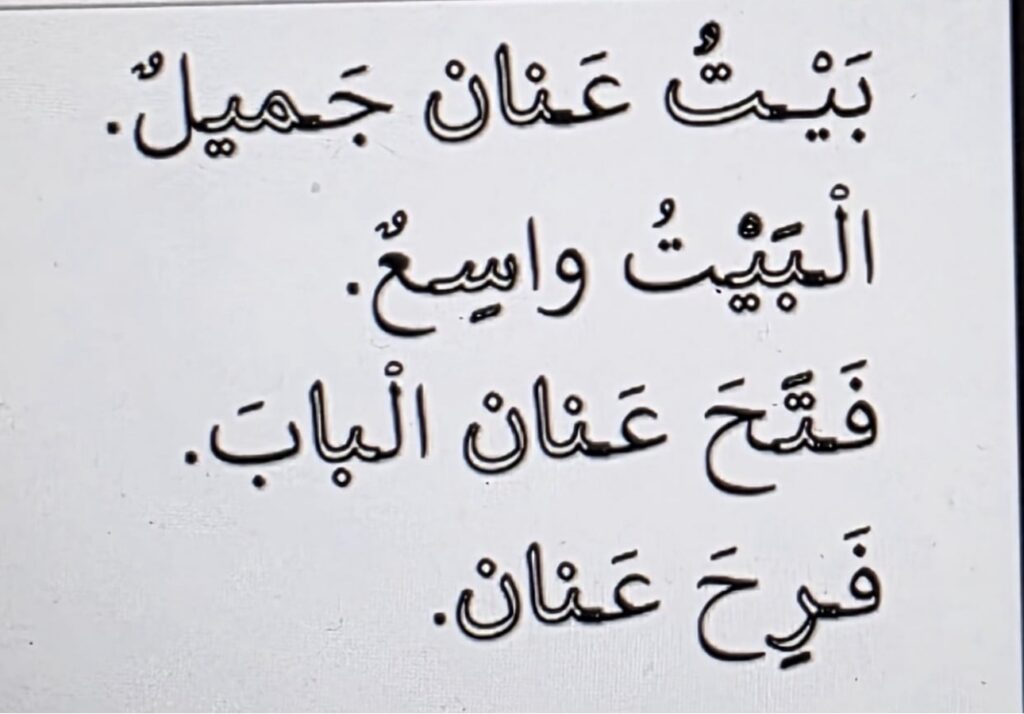 بَيْتُ عَنان جَميلٌ.
الْبَيْتُ واسِعٌ.
فَتَحَ عَنان الْبابَ.
فَرِحَ عَنان.